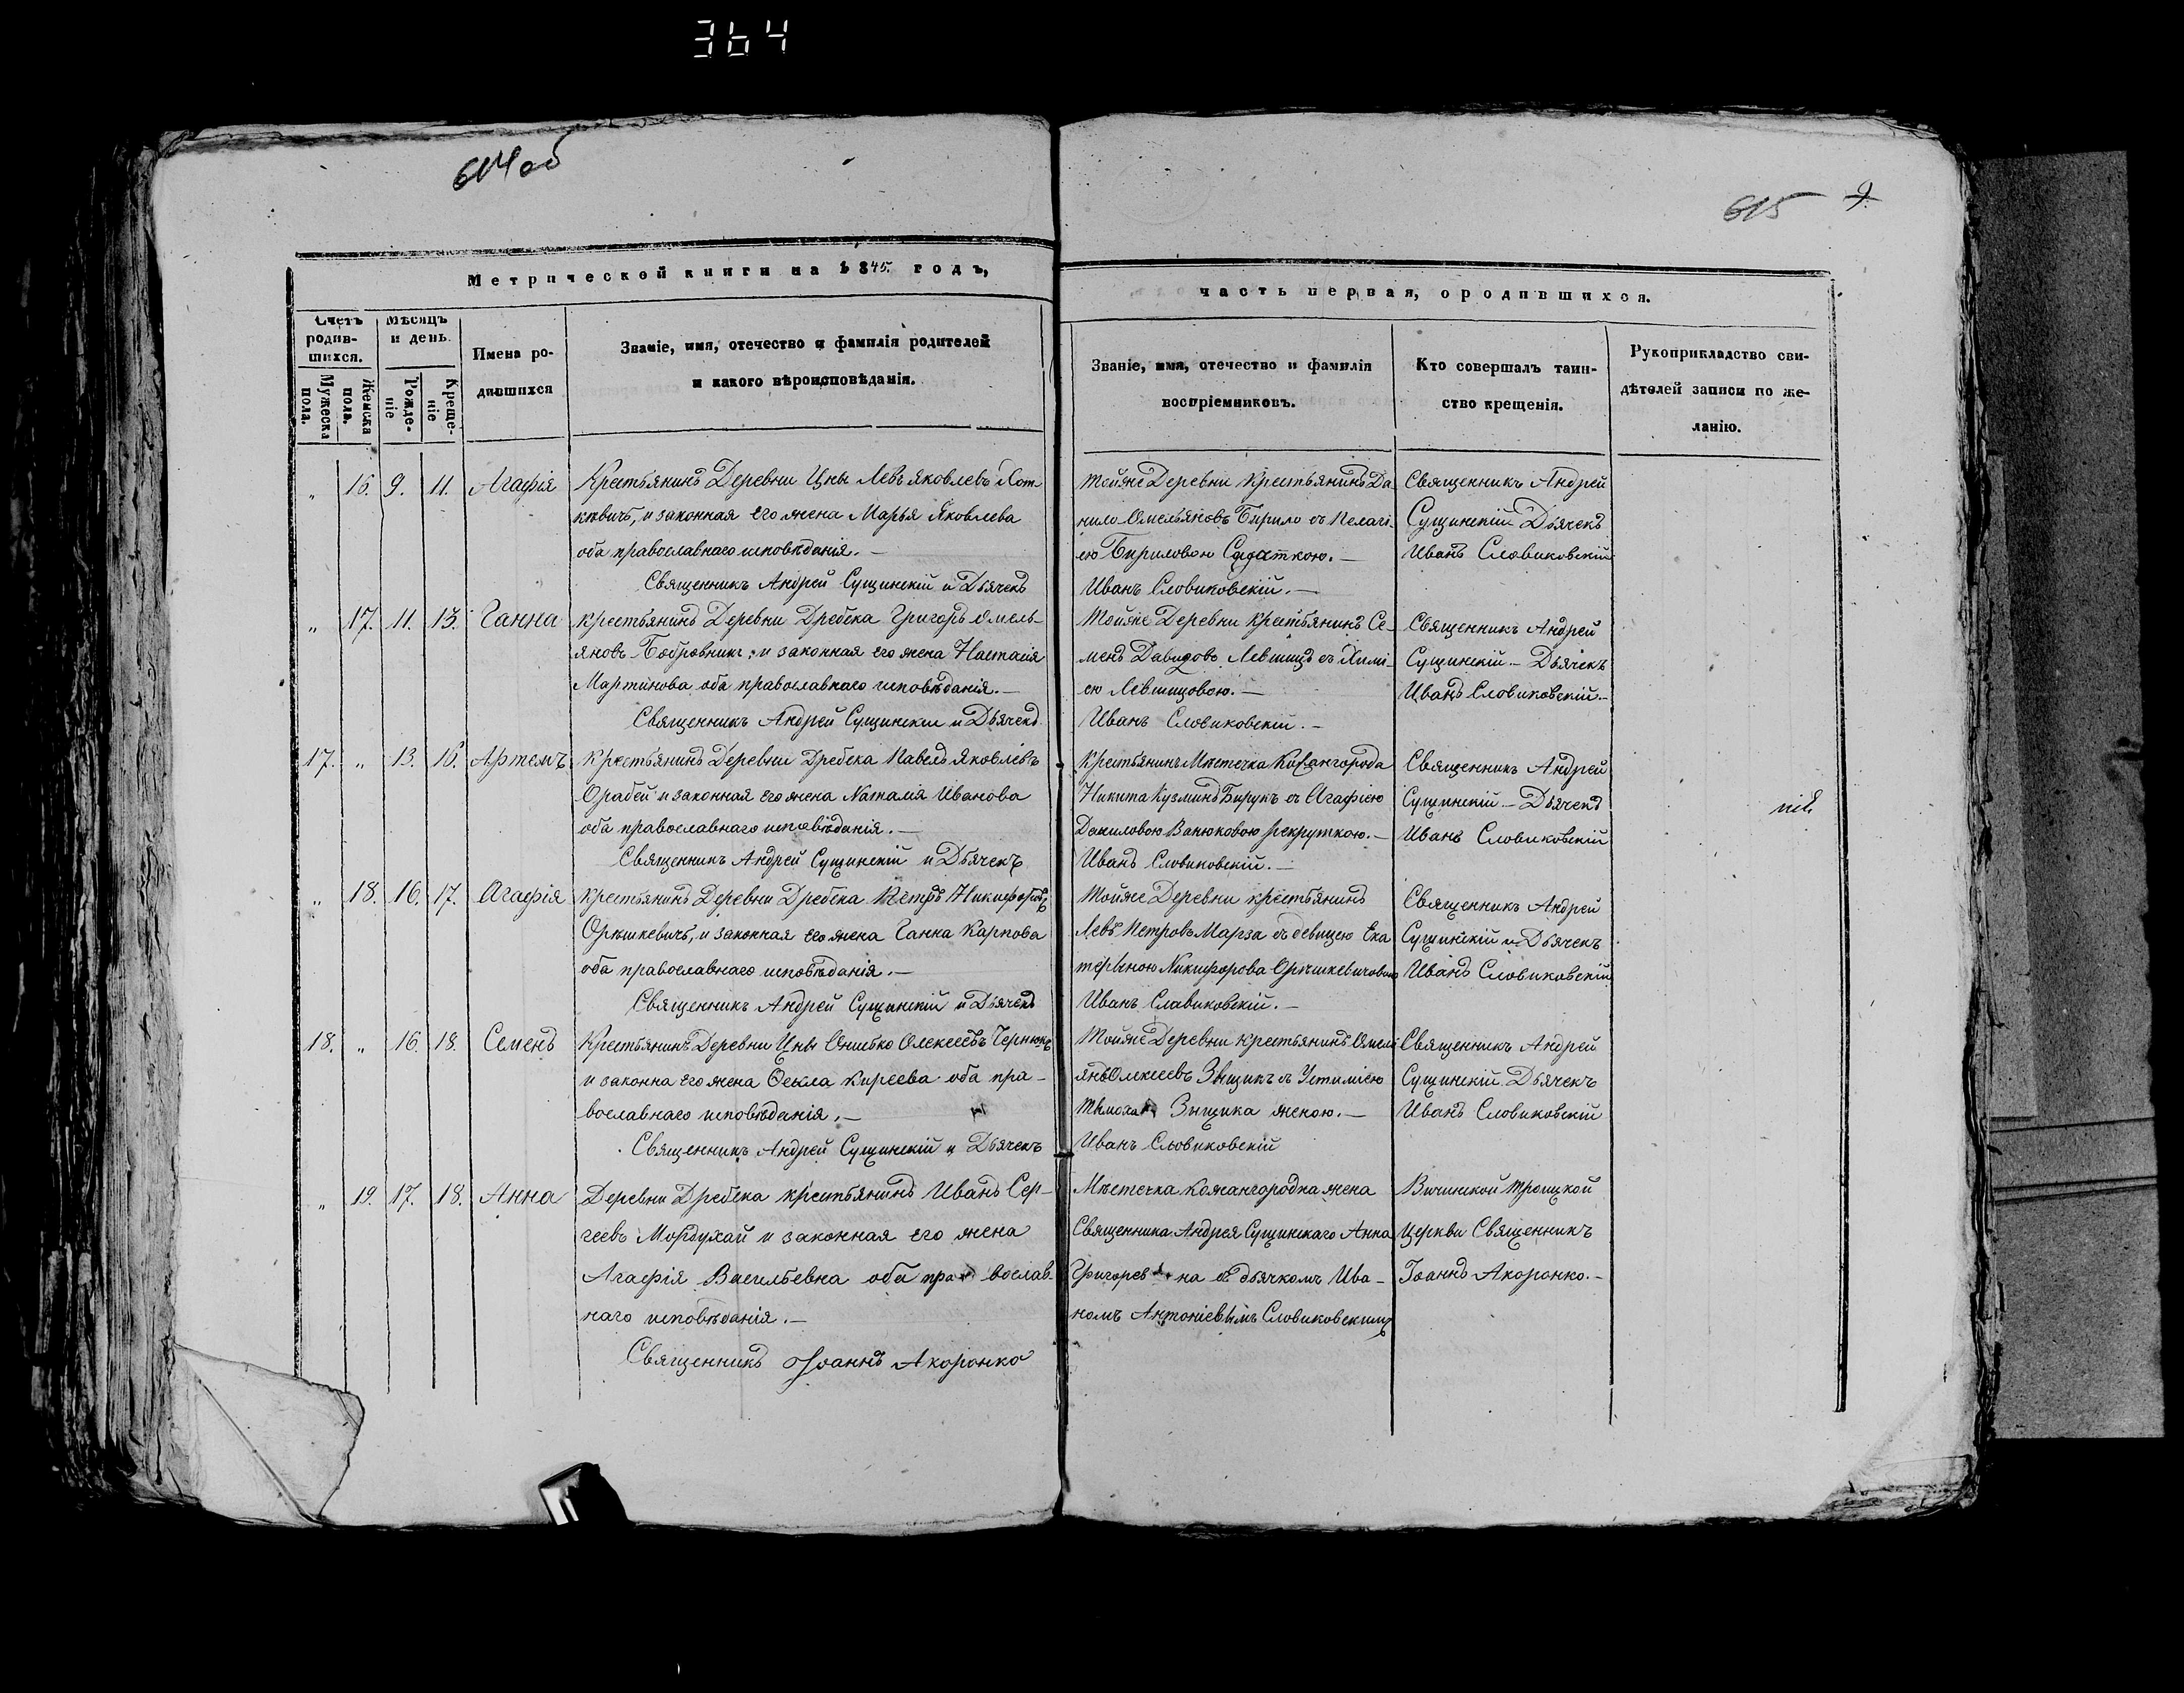 364
614 об
615 9.
Метрической книги на 1845. годъ,
часть первая, о родившихся.
Счетъ родив-шихся.
Мужеска пола.
Женска пола.
Мѣсяцъ и день.
Рожде-ніе
Креще-ніе
Имена ро-
дившихся
Званіе, имя, отечество и фамилія родителей
и какого вѣроисповѣданія.
Званіе, имя, отечество и фамилія
воспріемниковъ.
Кто совершалъ таин-
ство крещенія.
Рукоприкладство сви-
дѣтелей записи по же-
ланію.
" 16. 9. 11. Агафія
Крестьянинъ Деревни Цны Левъ Яковлевъ Хот
кевичъ, и законная его жена Марья Яковлева
оба православнаго исповѣданія. —
Священникъ Андрей Сущинскій и Дьячекъ
Тойже Деревни Крестьянинъ Да-
нило Омельяновъ Бирило съ Пелагі-
ею Бириловою Содаткою. —
Иванъ Словиковскій. —
Священникъ Андрей
Сущинскій Дьячекъ
Иванъ Словиковскій
" 17. 11. 13. Ганна
крестьянинъ Деревни Дребска Григоръ Омель-
яновъ Бобровникъ; и законная его жена Настасія
Мартинова оба православнаго исповѣданія. —
Священникъ Андрей Сущинскій и Дьячекъ
Тойже Деревни крестьянинъ Се-
менъ Давидовъ Левшицъ съ Химі-
ею Левшицовою. —
Иванъ Словиковскій. —
Священникъ Андрей
Сущинскій — Дьячекъ
Иванъ Словиковскій —
17. " 13. 16. Артемъ
Крестьянинъ Деревни Дребска Павелъ Яковлевъ
Орабей и законная его жена Наталія Иванова
оба православнаго исповѣданія. —
Священникъ Андрей Сущинскій и Дьячекъ
Крестьянинъ Мѣстечка Кожангорода
Никита Кузминъ Бирукъ съ Агафіею
Даниловою Ванюковою рекруткою. —
Иванъ Словиковскій. —
Священникъ Андрей
Сущинскій — Дьячекъ
Иванъ Словиковскій
" 18. 16. 17. Агафія
крестьянинъ Деревни Дребска Петръ Никифоровъ
Орѣшкевичъ, и законная его жена Ганна Карпова
оба православнаго исповѣданія. —
Священникъ Андрей Сущинскій и Дьячекъ
Тойже Деревни крестьянинъ
Левъ Петровъ Марза съ девицею Ека
териною Никифорова Орѣшкевичовою
Иванъ Славиковскій. —
Священникъ Андрей
Сущинскій и Дьячекъ
Иванъ Словиковскій
18. " 16. 18. Семенъ
Крестьянинъ Деревни Цны Онисько Олексеевъ Чернюкъ
и законна его жена Фекла Киреева оба пра-
вославнаго исповѣданія. —
Священникъ Андрей Сущинскій и Дьячекъ
Тойже Деревни крестьянинъ Омель
янъ Олексеевъ Зыщикъ съ Устиміею
Тимоха Зыщика женою. —
Иванъ Словиковскій
Священникъ Андрей
Сущинскій Дьячекъ
Иванъ Словиковскій
" 19. 17. 18. Анна
Деревни Дребска крестьянинъ Иванъ Сер-
геевъ Мордухай и законная его жена
Агафія Васильевна оба православ-
наго исповѣданія. —
Священникъ Іоаннъ Акоронко
Мѣстечка Кожангородка жена
Священника Андрея Сущинскаго Анна
Григорев на съ дьячкомъ Ива-
номъ Антоніевымъ Словиковскимъ
Вичинской Троицкой
Церкви Священникъ
Іоаннъ Акоронко. —